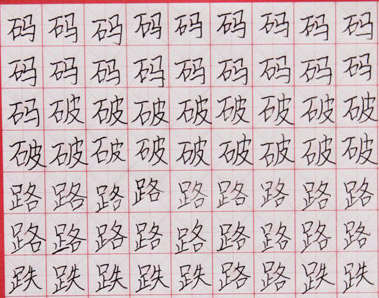 码码码码码码码码码
码码码码码码码码码
码破破破破破破破破
破破破破破破破破破
路路路路路路路路路
路路路路路路路路路
跌跌跌跌跌跌跌跌跌